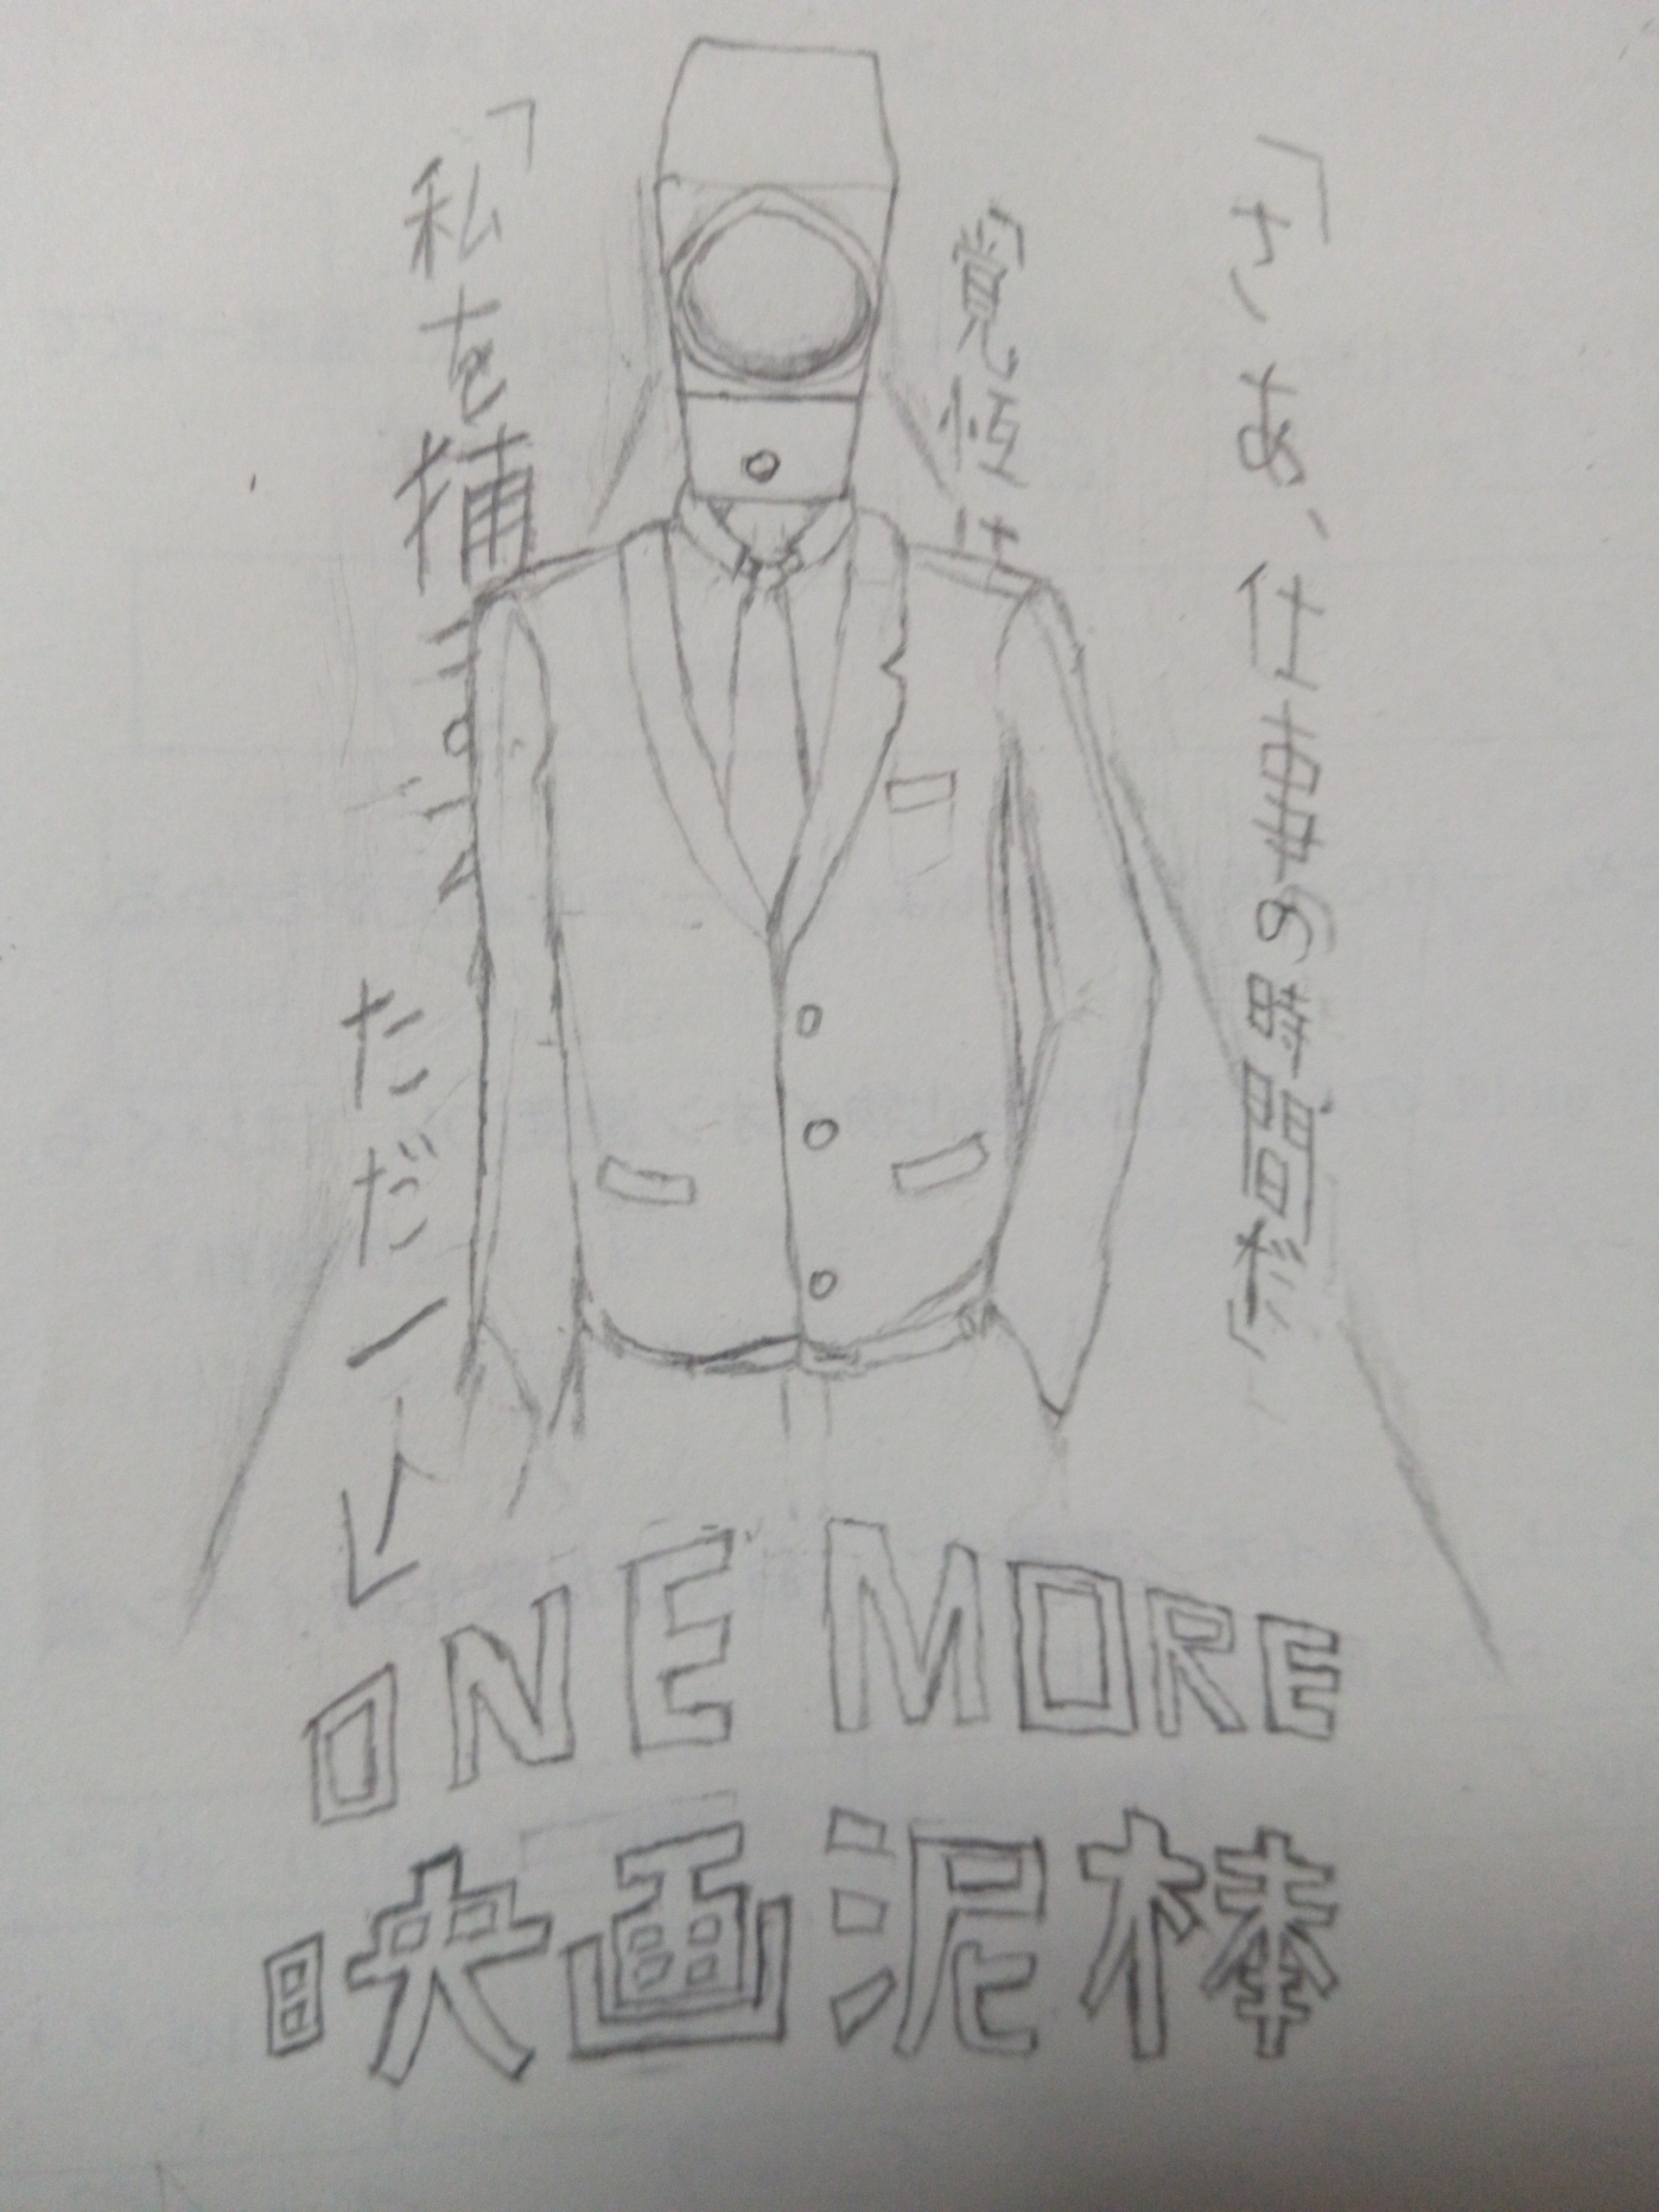 「さあ、仕事の
覚悟は
「私を捕
ただ一人」
ONE MORE
映画泥棒